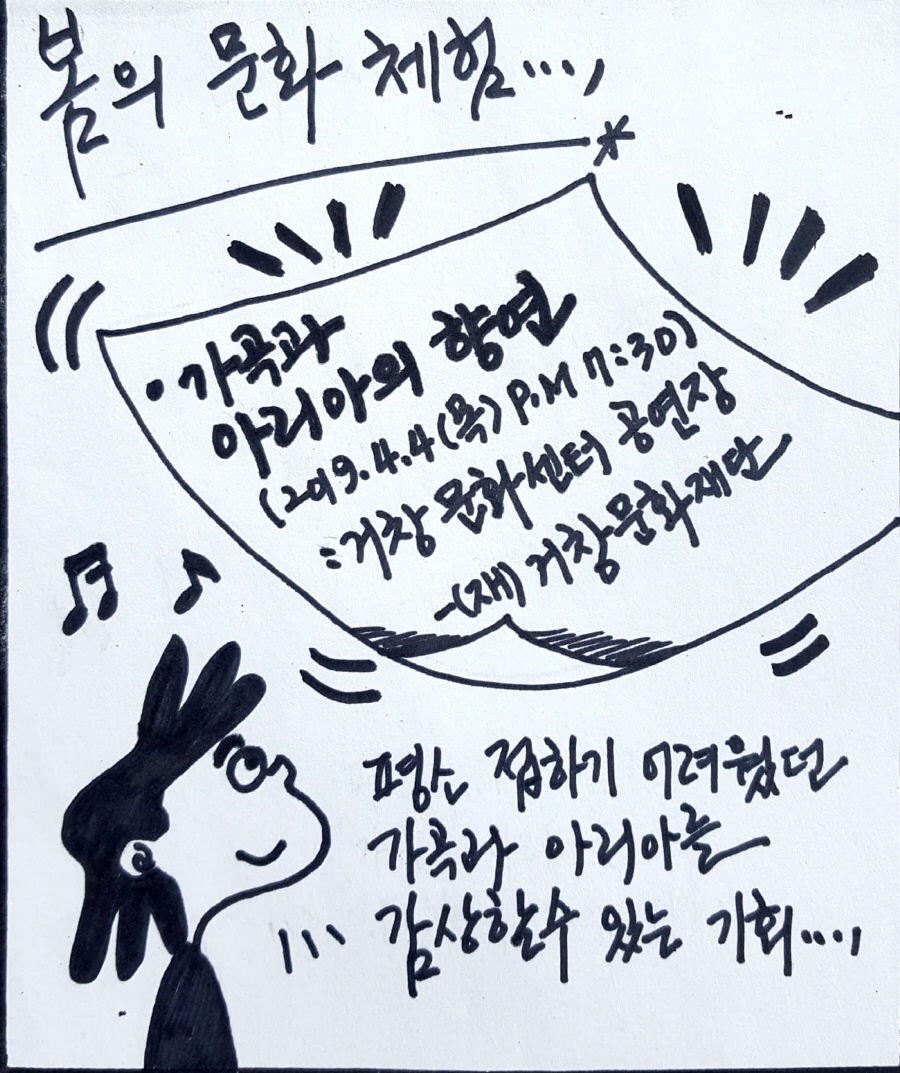 봄의 문화 체험...,
• 가곡과
아리아의 향연
(2019.4.4(목) P.M 7:30)
:거창 문화센터 공연장
-(재) 거창문화재단
평소 접하기 어려웠던
가곡과 아리아를
감상할수 있는 기회...,